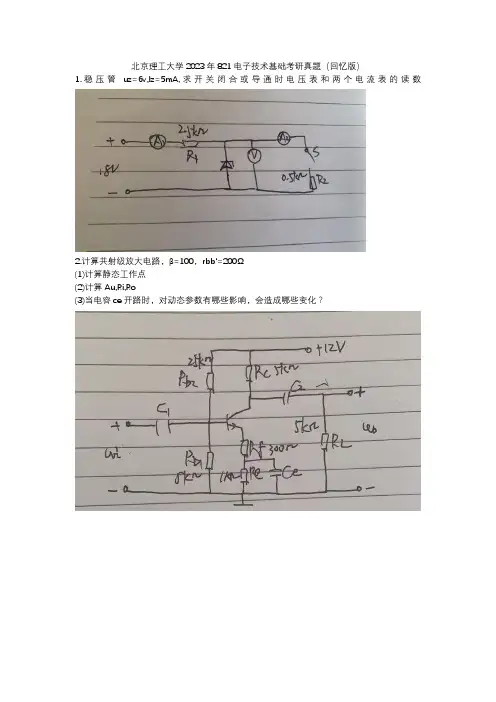 北京理工大学2023年821电子技术基础考研真题（回忆版）
1.稳压管 uz=6v,Iz=5mA,求开关闭合或导通时电压表和两个电流表的读数
+ A 2.5kΩ R1 V A2 S
18V 0.5kΩ R2
-
2.计算共射级放大电路，β=100，rbb'=200Ω
(1)计算静态工作点
(2)计算Au,Ri,Ro
(3)当电容ce开路时，对动态参数有哪些影响，会造成哪些变化？
+12V
25kΩ Rb2 Rc 5kΩ
C2 +
C1 5kΩ RL uo
+ Rf 300Ω
ui Rb1 8kΩ 1kΩ Re Ce
- -